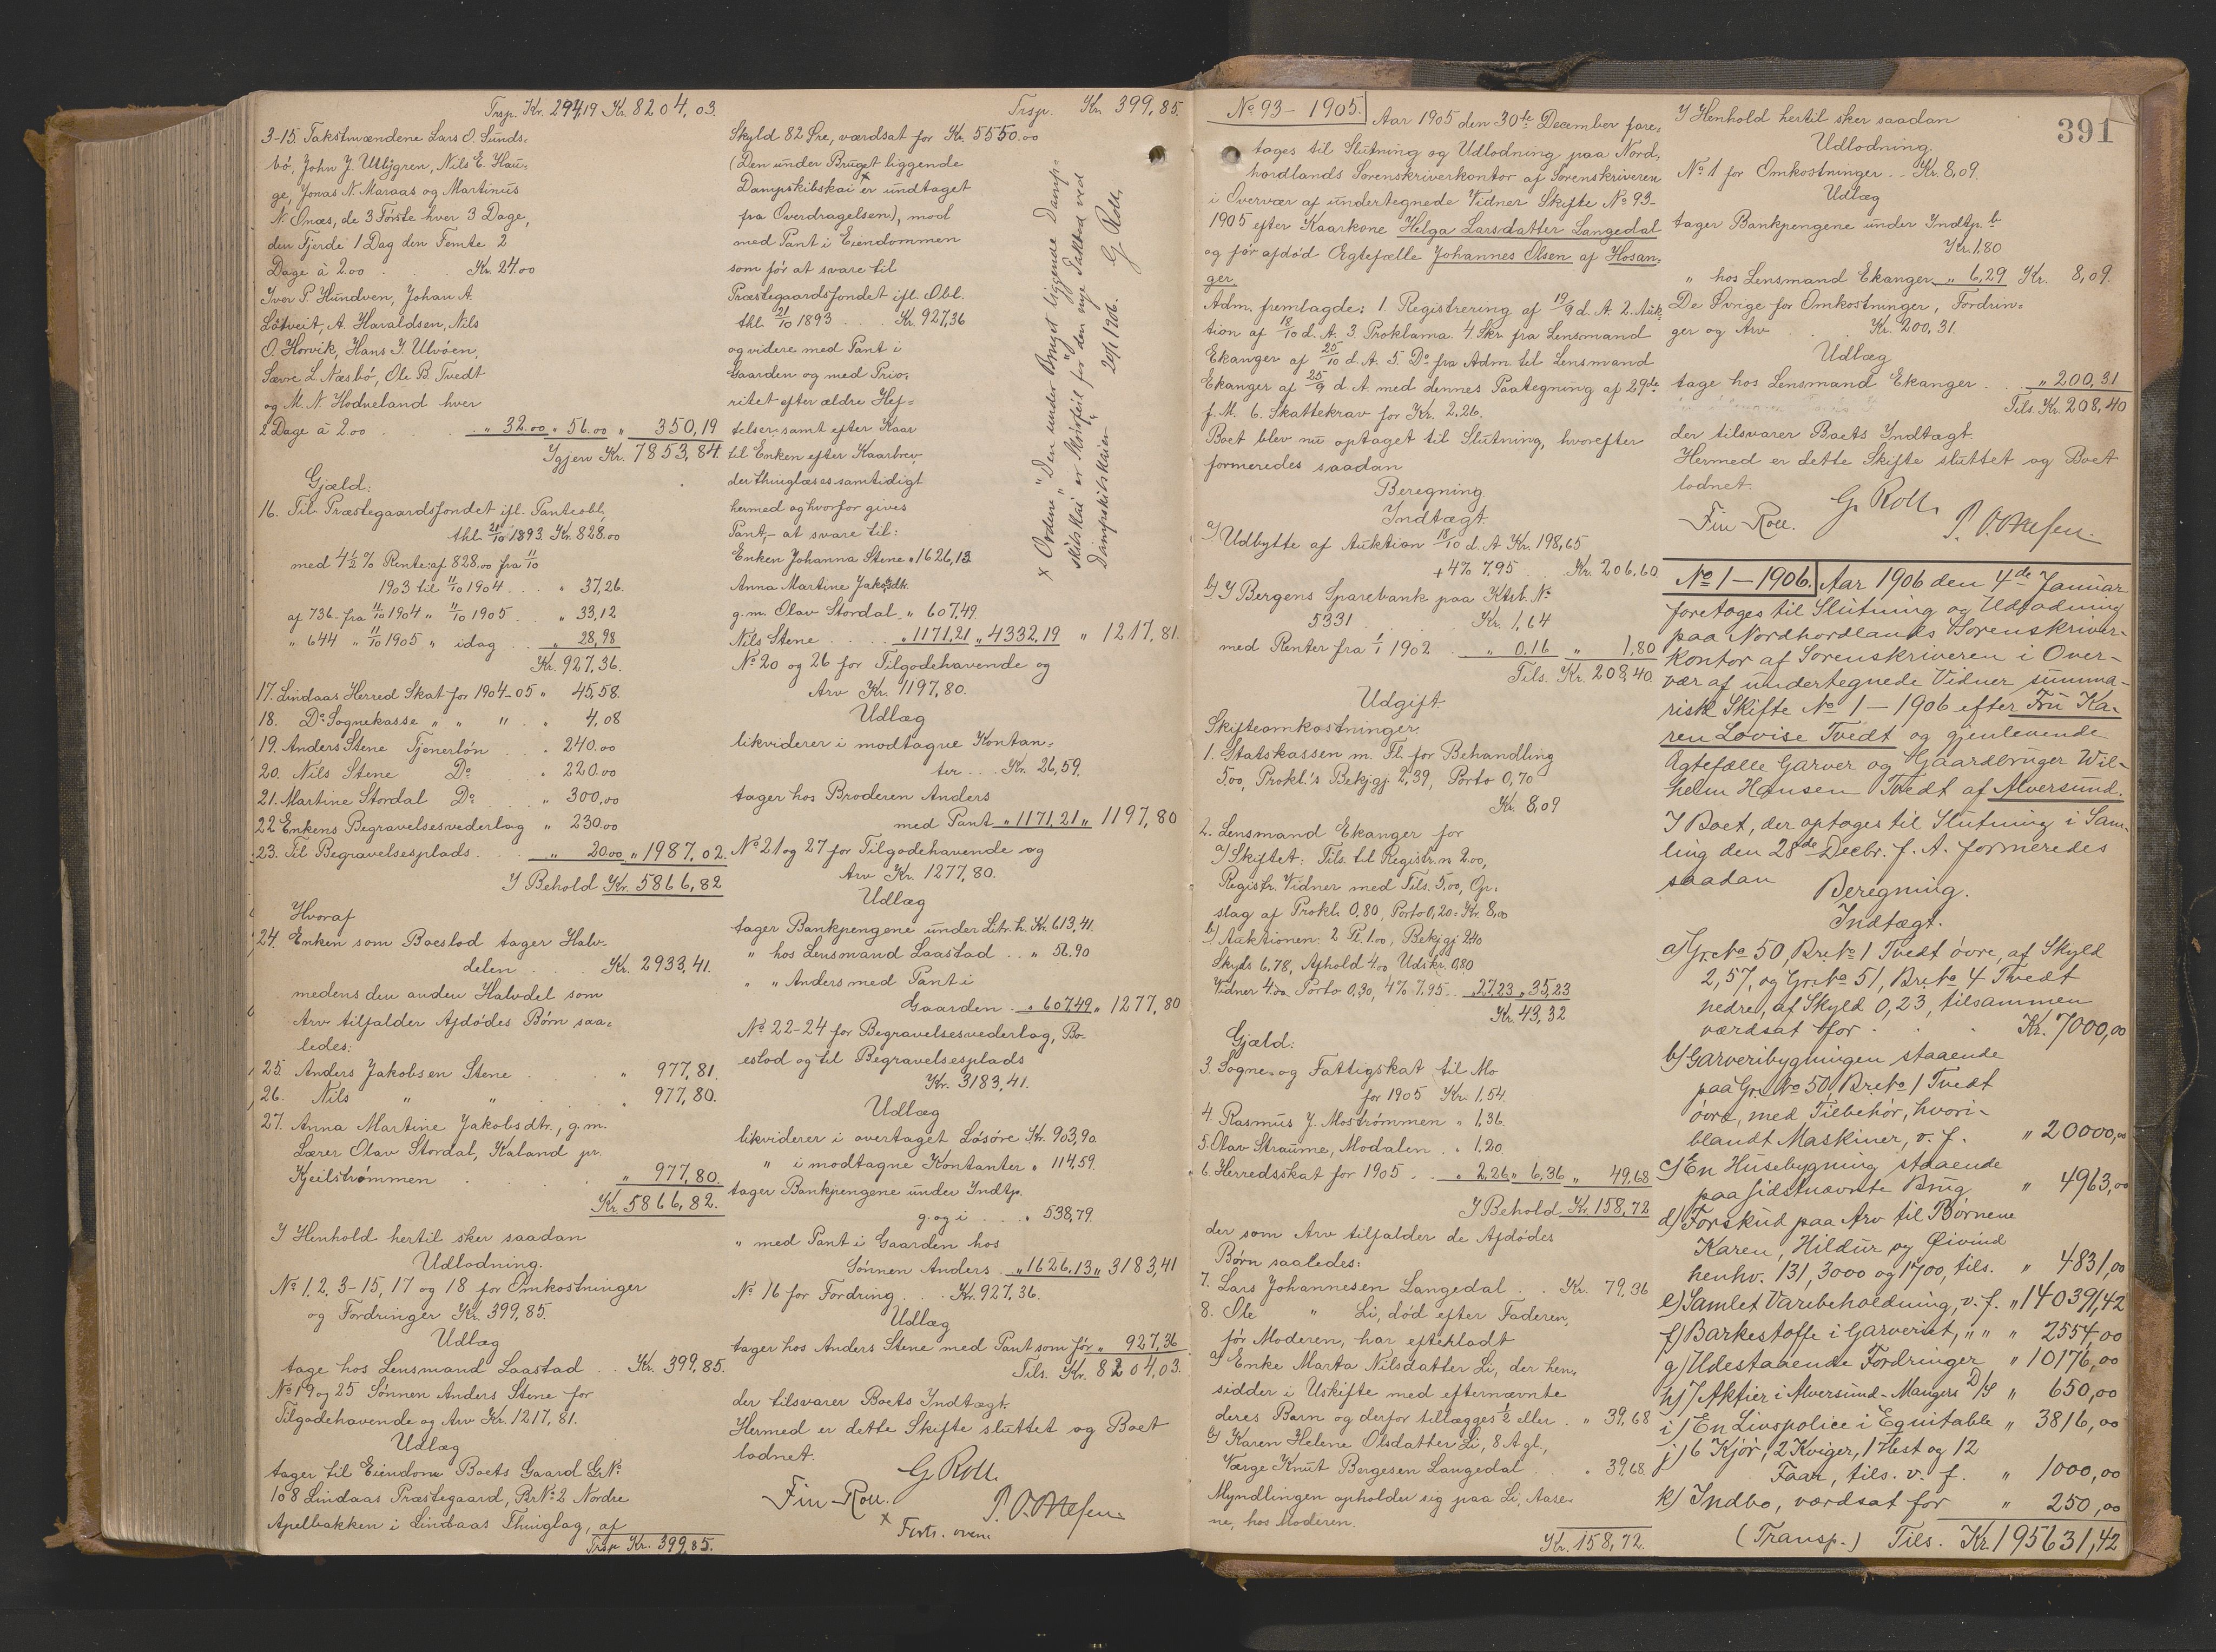 Trsp. Kr. 294,19 Kr. 8204,03.
3-15. Takstmændene Lars O. Sunds-
bö, John J. Ullsgren, Nils E. Hau-
ge, Jonas N. Maraas og Martinus
N. Onæs, de 3 Förste hver 3 Dage,
den Fjerde 1 Dag den Femte 2
Dage à 2.00 . . Kr. 24.00
Iver P. Hundven, Johan A.
Lötveit, A. Haraldsen, Nils
O. Horvik, Hans J. Ulvöen,
Sævre L. Næsbö, Ole B. Tvedt
og M. N. Hodneland hver
2 Dage à 2.00 . . . " 32.00 " 56.00 " 350,19
Igjen Kr. 7853,84.
Gjæld:
16. Til Præstegaardsfondet ifl. Panteobl.
thl. 21/10 1893 Kr. 828.00
med 4½ % Rente: af 828.00 fra 11/10
1903 til 11/10 1904 . . . " 37,26.
af 736.- fra 11/10 1904 " 11/10 1905 . . " 33,12
" 644 " 11/10 1905 " idag . . " 28,98
Kr. 927,36.
17. Lindaas Herred Skat for 1904-05 " 45,58.
18. Do Sognekasse " " " . " 4,08
19. Anders Stene Tjenerlön . . " 240.00
20. Nils Stene Do . " 220.00
21. Martine Stordal Do . . " 300,00
22 Enkens Begravelsesvederlag " 230.00
23. Til Begravelsesplads . . " 20.00 " 1987,02.
I Behold Kr. 5866,82
Hvoraf
24. Enken som Boeslod tager Halv-
delen . . Kr. 2933,41.
medens den anden Halvdel som
Arv tilfalder Afdödes Börn saa-
ledes:
25 Anders Jakobsen Stene . . . " 977,81.
26. Nils " " . . . " 977,80.
27. Anna Martine Jakobsdtr., g.m.
Lærer Olav Stordal, Kaland pr.
Kjeilströmmen . . . " 977,80.
Kr. 5866,82.
I Henhold hertil sker saadan
Udlodning.
No 1. 2. 3-15, 17 og 18 for Omkostninger
og Fordringer Kr. 399,85.
Udlæg
tage hos Lensmand Laastad . . Kr. 399,85.
No 19 og 25 Sönnen Anders Stene for
Tilgodehavende og Arv Kr. 1217,81.
Udlæg
tager til Eiendom Boets Gaard G.No
108 Lindaas Præstegaard, Br.No 2 Nordre
Apelbakken i Lindaas Thinglag, af
Trsp. Kr. 399,85.
Trsp. Kr. 399,85.
Skyld 82 Öre, værdsat for Kr. 5550.00
(Den under Bruget liggende
Dampskibskai x er undtaget
fra Overdragelsen), mod
med Pant i Eiendommen
som för at svare til
Præstegaardsfondet ifl. Obl.
thl. 21/10 1893 . . Kr. 927,36
og videre med Pant i
Gaarden og med Prio-
ritet efter ældre Hef-
telser samt efter Kaar
til Enken efter Kaarbrev,
der thinglæses samtidigt
hermed og hvorfor gives
Pant, - at svare til:
Enken Johanna Stene " 1626,13
Anna Martine Jakobsdtr.
g.m. Olav Stordal " 607,49.
Nils Stene . . . " 1171,21 " 4332,19 " 1217,81.
No 20 og 26 for Tilgodehavende og
Arv Kr. 1197,80.
Udlæg
likviderer i modtagne Kontan-
ter . . . Kr. 26,59.
tager hos Broderen Anders
med Pant " 1171,21 " 1197,80
No 21 og 27 for Tilgodehavende og
Arv Kr. 1277,80.
Udlæg
tager Bankpengene under Litr. h. Kr. 613,41.
" hos Lensmand Laastad . . " 56.90
" " Anders med Pant i
Gaarden . " 607,49 " 1277,80
No 22-24 for Begravelsesvederlag, Bo-
eslod og til Begravelsesplads
Kr. 3183,41.
Udlæg
likviderer i overtaget Lösöre Kr. 903,90.
" i modtagne Kontanter " 114,59.
tager Bankpengene under Indtp.
g. og i . . . " 538,79.
" med Pant i Gaarden hos
Sönnen Anders . " 1626.13 " 3183,41
No 16 for Fordring . . Kr. 927,36.
Udlæg
tager hos Anders Stene med Pant som för " 927,36
Tils. Kr. 8204,03.
der tilsvarer Boets Indtægt.
Hermed er dette Skifte sluttet og Boet
lodnet.
G. Roll.
Fin Roll.
x Forts. oven
x Ordene "Den under Bruget liggende Damp-
skibskai" er Skrivfeil for "den nye Söbod ved
Dampskibskaien" 20/1 1906. G. Roll.
391
No 93 - 1905. Aar 1905 den 30te December fore-
tages til Slutning og Udlodning paa Nord-
hordlands Sorenskriverkontor af Sorenskriveren
i Overvær af undertegnede Vidner Skifte No 93-
1905 efter Kaarkone Helga Larsdatter Langedal
og för afdöd Ægtefælle Johannes Olsen af Hosan-
ger.
Adm. fremlagde: 1. Registrering af 19/9 d. A. 2. Auk-
tion af 18/10 d. A. 3. Proklama. 4. Skr. fra Lensmand
Ekanger af 25/10 d. A. 5. Do fra Adm. til Lensmand
Ekanger af 25/9 d. A. med dennes Paategning af 29de
f. M. 6. Skattekrav for Kr. 2,26.
Boet blev nu optaget til Slutning, hvorefter
formeredes saadan
Beregning.
Indtægt
a) Udbytte af Auktion 18/10 d. A. Kr. 198,65
+ 4% 7,95 . . Kr. 206,60.
b) I Bergens Sparebank paa Ktrb. No
5331 . . . Kr. 1,64
med Renter fra 1/1 1902 . . " 0,16 " 1,80
Tils. Kr. 208,40.
Udgift
Skifteomkostninger.
1. Statskassen m. Fl. for Behandling
5.00, Prokl.'s Bekjgj. 2,39, Porto 0,70
Kr. 8,09
2. Lensmand Ekanger for
a) Skiftet: Tils. til Registr. m. 2.00,
Registr. Vidner med Tils. 5.00, Op-
slag af Prokl. 0,80, Porto 0,20 = Kr. 8,00
b) Auktionen: 2 Pl. 1.00, Bekjgj. 2.40
Skyds 6.78, Afhold 4.00 Udskr. 0,80
Vidner 4.00, Porto 0,30, 4% 7,95 . . " 27,23 " 35,23
Kr. 43,32
Gjæld:
3. Sogne- og Fattigskat til Mo
for 1905 Kr. 1,54.
4. Rasmus J. Moströmmen " 1,36.
5. Olav Straume, Modalen . " 1.20.
6. Herredsskat for 1905 . . " 2,26 " 6,36 " 49,68
I Behold Kr. 158,72
der som Arv tilfalder de Afdödes
Börn saaledes:
7. Lars Johannesen Langedal . . Kr. 79,36
8. Ole " Li, död efter Faderen,
för Moderen, har efterladt
a) Enke Marta Nilsdatter Li, der hen-
sidder i Uskifte med efternævnte
deres Barn og derfor tillægges ½ eller . " 39,68
b) Karen Helene Olsdatter Li, 8 A gl.,
Værge Knut Børgesen Langedal . . " 39,68.
Myndlingen opholder sig paa Li, Aase-
ne, hos Moderen.
Kr. 158,72.
I Henhold hertil sker saadan
Udlodning.
No 1 for Omkostninger . . Kr. 8,09.
Udlæg
tager Bankpengene under Indtp. b
Kr. 1,80
" hos Lensmand Ekanger " 6,29 Kr. 8,09.
De Övrige for Omkostninger, Fordrin-
ger og Arv . . . Kr. 200,31.
Udlæg
tage hos Lensmand Ekanger . . . " 200,31
Tils. Kr. 208,40
der tilsvarer Boets Indtægt.
Hermed er dette Skifte sluttet og Boet
lodnet.
G. Roll.
Fin Roll.
No 1 - 1906. Aar 1906 den 4de Januar
foretoges til Slutning og Udlodning
paa Nordhordlands Sorenskriver-
kontor af Sorenskriveren i Over-
vær af undertegnede Vidner summa-
risk Skifte No 1 - 1906 efter Fru Ka-
ren Lovise Tvedt og gjenlevende
Ægtefælle Garver og Gaardbruger Wil-
helm Hansen Tvedt af Alversund.
I Boet, der optoges til Slutning i Sam-
ling den 28de Decbr. f. A. formeredes
saadan Beregning.
Indtægt.
a) Gr.No 50, Br.No 1 Tvedt övre, af Skyld
2,57, og Gr.No 51, Br.No 4 Tvedt
nedre, af Skyld 0,23, tilsammen
værdsat for . . . Kr. 7000,00
b) Garveribygningen staaende
paa Gr.No 50, Br.No 1 Tvedt
övre, med Tilbehör, hvori-
blandt Maskiner, v. f. " 20000,00
c) En Husebygning staaende
paa sidstnævnte Brug " 4963,00
d) Forskud paa Arv til Börnene
Karen, Hildur og Öivind
henhv. 131, 3000 og 1700, tils. " 4831,00
e) Samlet Varebeholdning, v. f. " 140391,42
f) Barkestoffe i Garveriet, " " " 2554,00
g) Udestaaende Fordringer " 10176,00
h) 7 Aktier i Alversund-Mangers D/S " 650,00
i) En Livspolice i Equitable " 3816,00
j) 6 Kjör, 2 Kviger, 1 Hest og 12
Faar, tils. v. f. " 1000,00
k) Indbo, værdsat for " 250,00
(Transp.) Tils. Kr. 195631,42